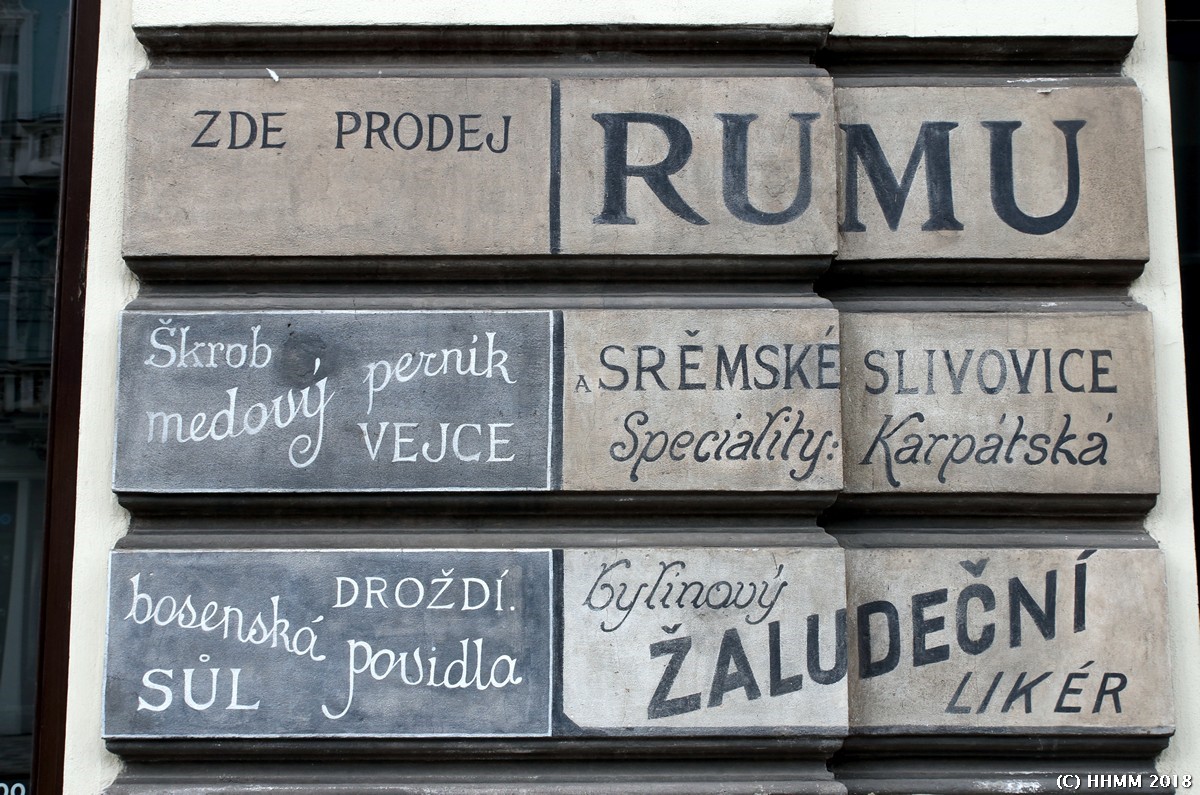 ZDE PRODEJ RUMU
Škrob
medový perník
VEJCE
A SRĚMSKÉ SLIVOVICE
Speciality: Karpátská
bosenská DROŽDÍ.
SŮL povidla
bylinový
ŽALUDEČNÍ
LIKÉR
(C) HHMM 2018